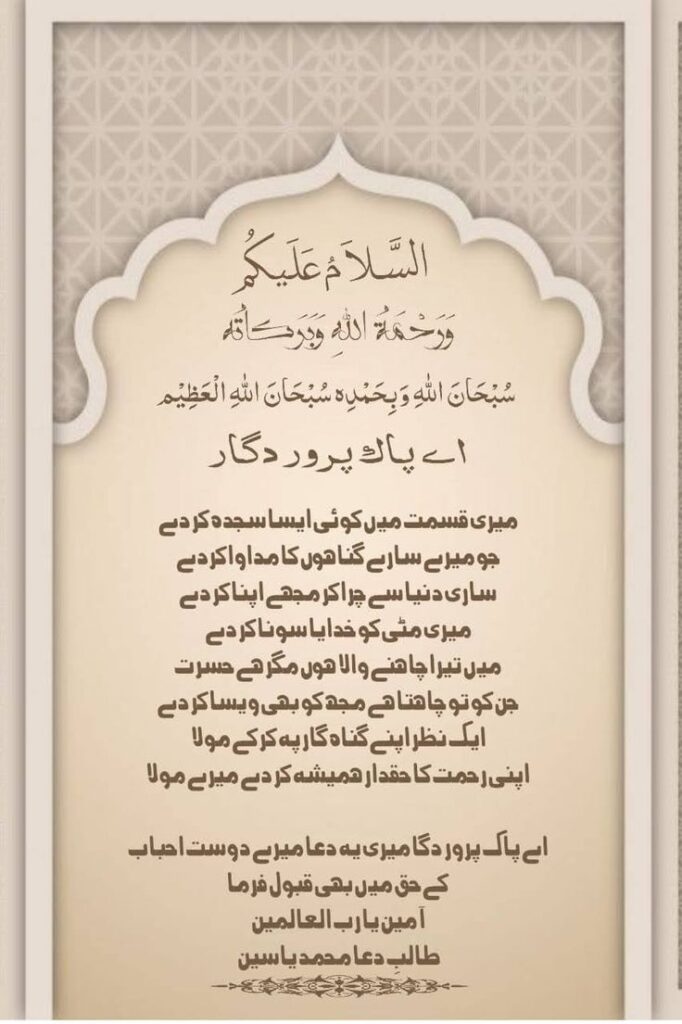 السَّلاَمُ عَلَيكُم
وَرَحْمَةُ اللهِ وَبَرَكاتُه
سُبْحَانَ اللهِ وَبِحَمْدِہ سُبْحَانَ اللهِ الْعَظِیْم
اے پاک پرور دگار
میری قسمت میں کوئی ایسا سجدہ کر دے
جو میرے سارے گناھوں کا مداوا کر دے
ساری دنیا سے چرا کر مجھے اپنا کر دے
میری مٹی کو خدایا سونا کر دے
میں تیرا چاھنے والا ھوں مگر ھے حسرت
جن کو تو چاھتا ھے مجھ کو بھی ویسا کر دے
ایک نظر اپنے گناہ گار پہ کر کے مولا
اپنی رحمت کا حقدار ھمیشہ کر دے میرے مولا
اے پاک پرور دگا میری یہ دعا میرے دوست احباب
کے حق میں بھی قبول فرما
آمین یا رب العالمین
طالبِ دعا محمد یاسین